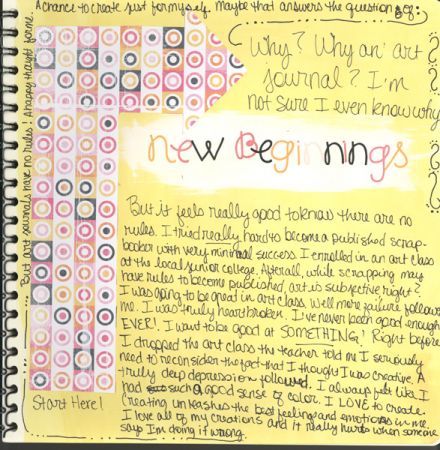 Start Here!
But art journals have no rules! A happy thought for me.
A chance to create just for myself. Maybe that answers the question of:
Why? Why an art
journal? I'm
not sure I even know why
new Beginnings
But it feels really good to know there are no
rules. I tried really hard to become a published scrap-
booker with very minimal success. I enrolled in an art class
at the local junior college. Afterall, while scrapping may
have rules to become published, art is subjective right?
I was going to be great in art class. Well more failure followed
me. I was truly heartbroken. I've never been good enough
EVER! I want to be good at SOMETHING! Right before
I dropped the art class the teacher told me I seriously
need to reconsider the fact that I thought I was creative. A
truly deep depression followed. I always felt like I
had such a good sense of color. I LOVE to create.
Creating unleashes the best feelings and emotions in me.
I love all of my creations and it really hurts when someone
says I'm doing it wrong.